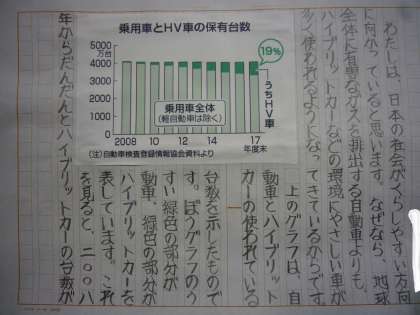 わたしは、日本の社会がくらしやすい方向
に向かっていると思います。なぜなら、地球
全体に有害なガスを排出する自動車よりも、
ハイブリットカーなどの環境にやさしい車が
使われるようになってきているからです。
乗用車とHV車の保有台数
5000
万台
4000
3000
2000
1000
0
2008
10
12
14
16
17
年度末
19%
うちHV車
乗用車全体
(軽自動車は除く)
(注)自動車検査登録情報協会資料より
上のグラフは、自
動車とハイブリット
カーの使われている
台数を示したもので
す。ぼうグラフのう
すい緑色の部分が
動車、緑色の部分が
ハイブリットカーを
表しています。これ
を見ると、二〇〇八
年からだんだんとハイブリットカーの台数が